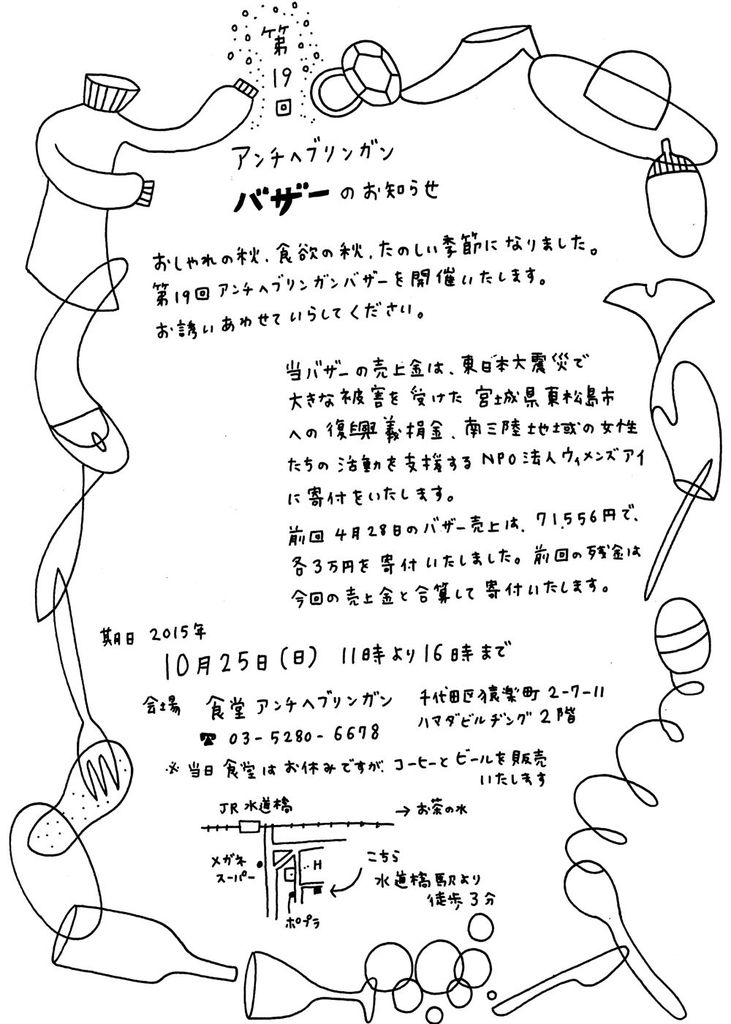 第19回
アンチヘブリンガン
バザーのお知らせ
おしゃれの秋、食欲の秋、たのしい季節になりました。
第19回アンチヘブリンガンバザーを開催いたします。
お誘いあわせていらしてください。
当バザーの売上金は、東日本大震災で
大きな被害を受けた宮城県東松島市
への復興義捐金、南三陸地域の女性
たちの活動を支援するNPO法人ウィメンズアイ
に寄付をいたします。
前回4月28日のバザー売上は、71,556円で、
各3万円を寄付いたしました。前回の残金は
今回の売上金と合算して寄付いたします。
期日 2015年
10月25日(日) 11時より16時まで
会場 食堂アンチヘブリンガン
千代田区猿楽町2-7-11
ハマダビルヂング2階
☎ 03-5280-6678
※当日食堂はお休みですが、コーヒーとビールを販売
いたします
JR水道橋
→お茶の水
メガネ
スーパー
H
こちら
水道橋駅より
徒歩3分
ポプラ